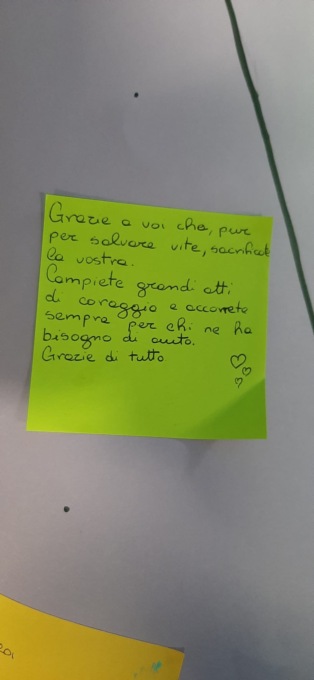 Grazie a voi che, pur
per salvare vite, sacrificate
la vostra.
Compiete grandi atti
di coraggio e accorrete
sempre per chi ne ha
bisogno di aiuto.
Grazie di tutto